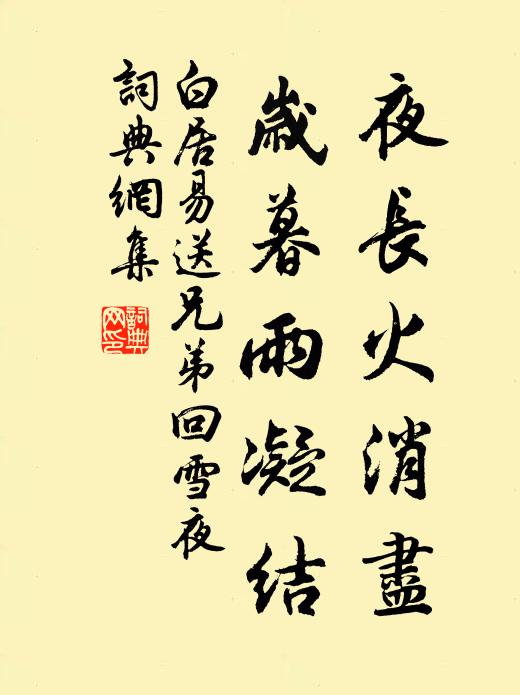 夜長火消盡
歲暮雨凝結
白居易送兄弟回雪夜
詞典網集
詞典网印